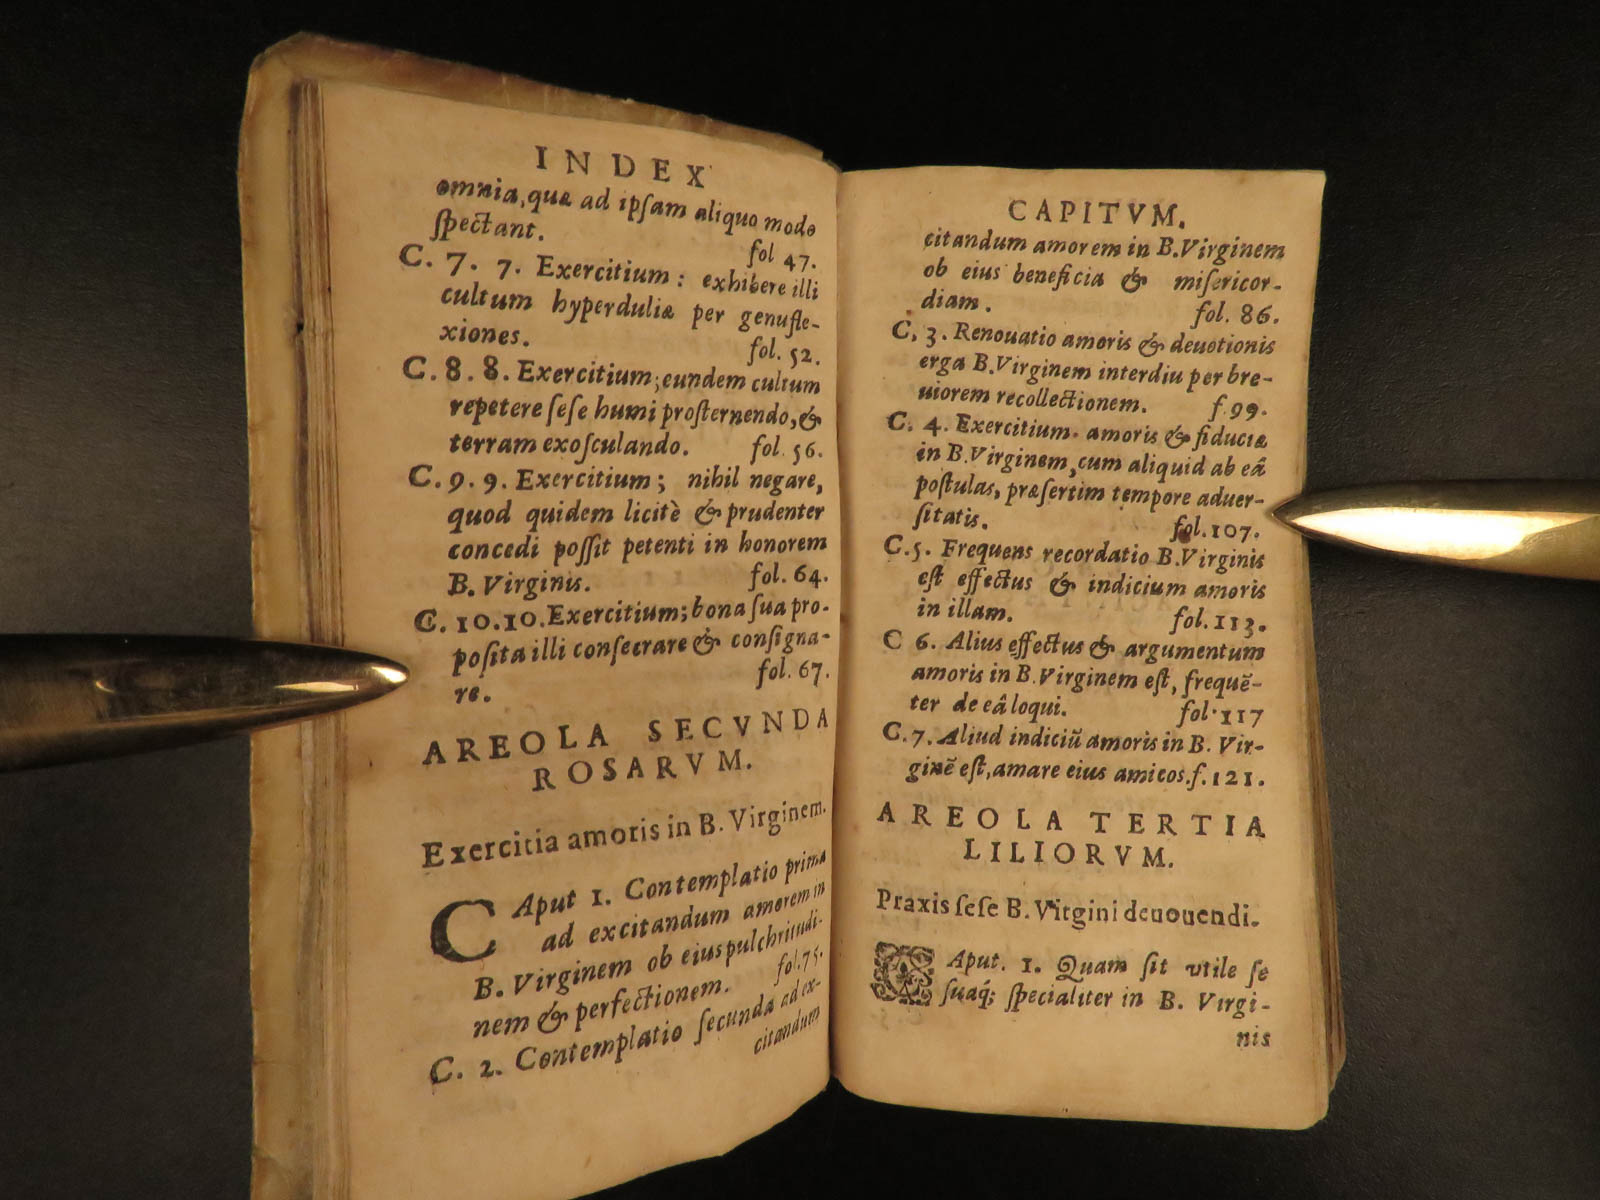 INDEX
omnia, quæ ad ipſam aliquo modo
ſpectant.
fol 47.
C. 7. 7. Exercitium: exhibere illi
cultum hyperduliæ per genufle-
xiones.
fol. 52.
C. 8. 8. Exercitium; eundem cultum
repetere ſeſe humi proſternendo, &
terram exoſculando. fol. 56.
C. 9. 9. Exercitium; nihil negare,
quod quidem licitè & prudenter
concedi poſſit petenti in honorem
B. Virginis. fol. 64.
C. 10. 10. Exercitium; bona ſua pro-
poſita illi conſecrare & conſigna-
re. fol. 67.
AREOLA SECVNDA
ROSARVM.
Exercitia amoris in B. Virginem.
CAput 1. Contemplatio prima
ad excitandum amorem in
B. Virginem ob eius pulchritudi-
nem & perfectionem. fol. 75.
C. 2. Contemplatio ſecunda ad ex-
citandum
CAPITVM.
citandum amorem in B. Virginem
ob eius beneficia & miſericor-
diam. fol. 86.
C. 3. Renouatio amoris & deuotionis
erga B. Virginem interdiu per bre-
uiorem recollectionem. f. 99.
C. 4. Exercitium amoris & fiduciæ
in B. Virginem, cum aliquid ab eâ
poſtulas, præſertim tempore aduer-
ſitatis. fol. 107.
C. 5. Frequens recordatio B. Virginis
eſt effectus & indicium amoris
in illam. fol. 113.
C 6. Alius effectus & argumentum
amoris in B. Virginem eſt, frequẽ-
ter de eâ loqui. fol. 117
C. 7. Aliud indiciũ amoris in B. Vir-
ginẽ eſt, amare eius amicos. f. 121.
AREOLA TERTIA
LILIORVM.
Praxis ſeſe B. Virgini deuouendi.
CAput. 1. Quam ſit vtile ſe
ſuaq; ſpecialiter in B. Virgi-
nis